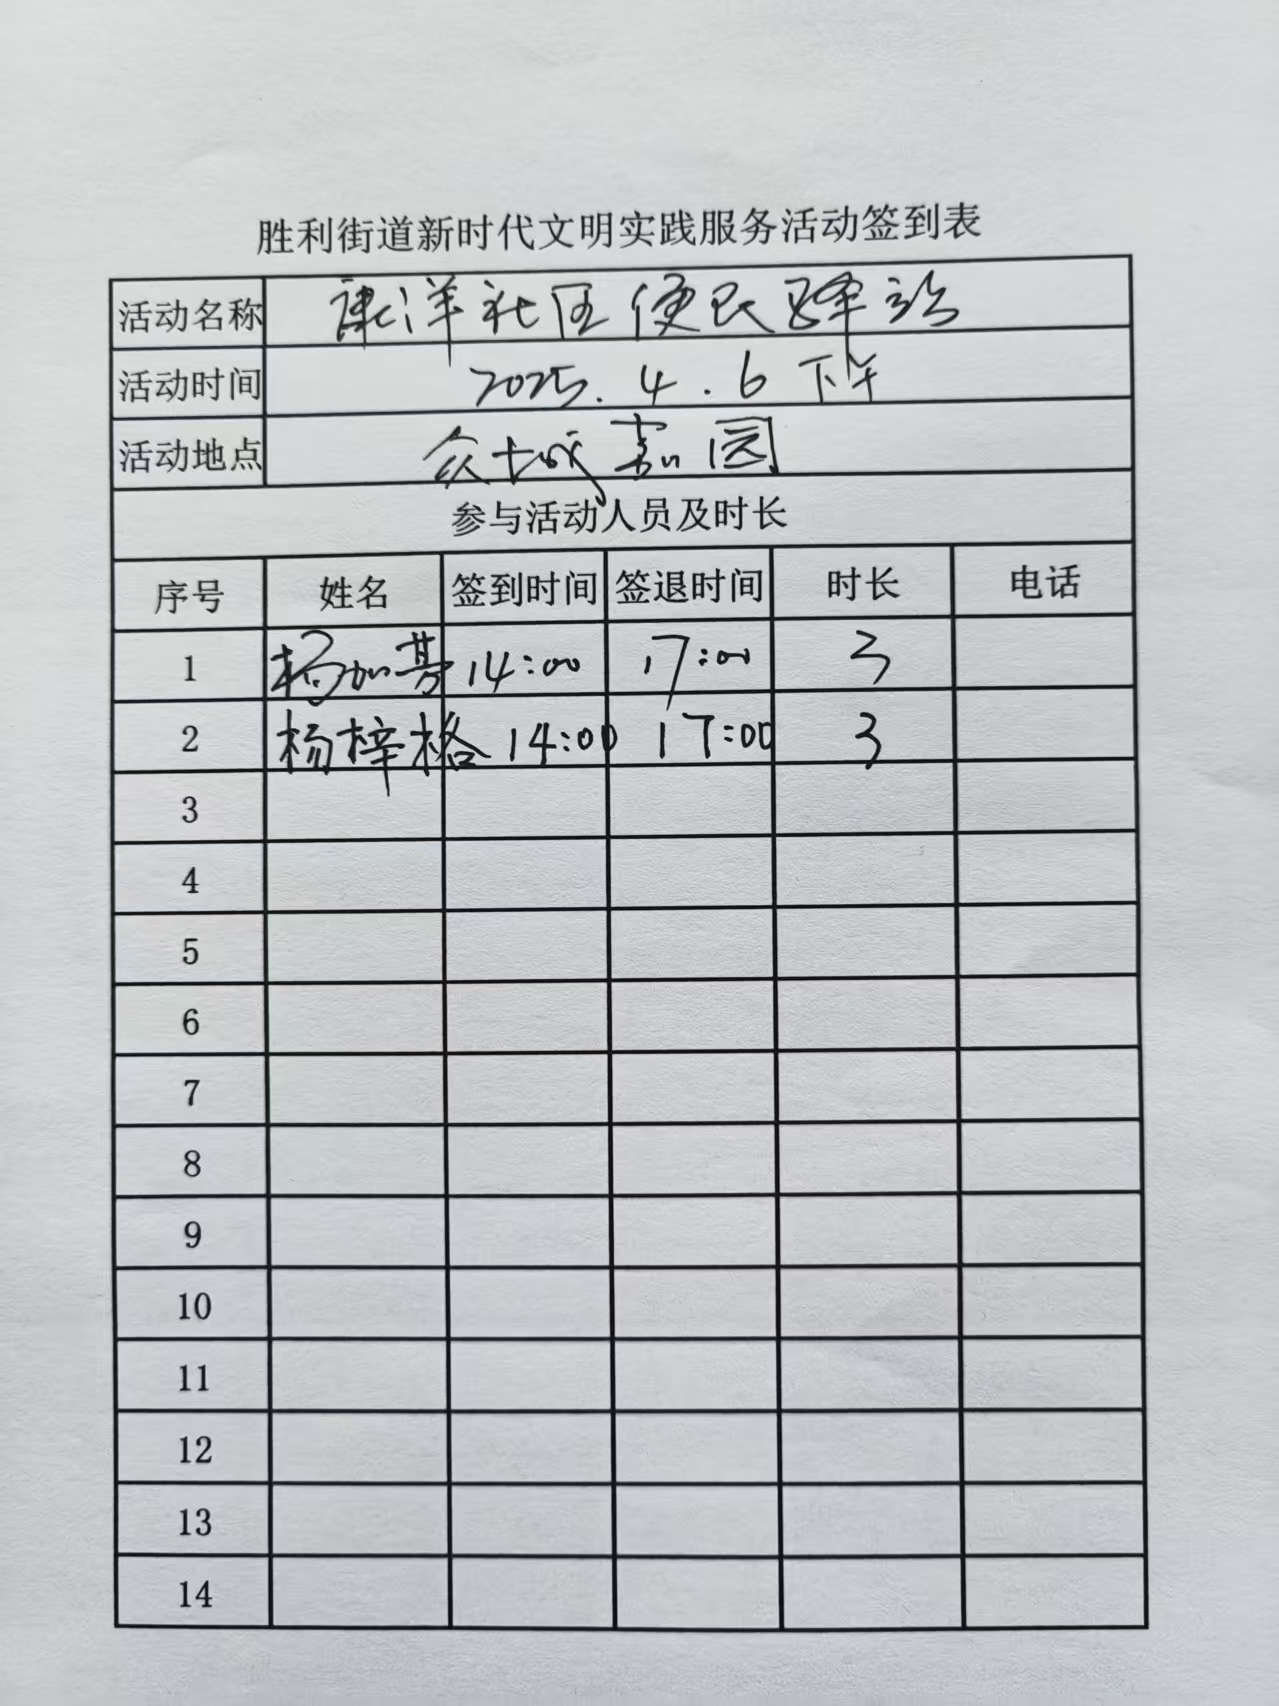 胜利街道新时代文明实践服务活动签到表
活动名称 康洋社区便民驿站
活动时间 2025.4.6 下午
活动地点 众城嘉园
参与活动人员及时长
序号 姓名 签到时间 签退时间 时长 电话
1 杨加 14:00 17:00 3
2 杨梓格 14:00 17:00 3
3
4
5
6
7
8
9
10
11
12
13
14